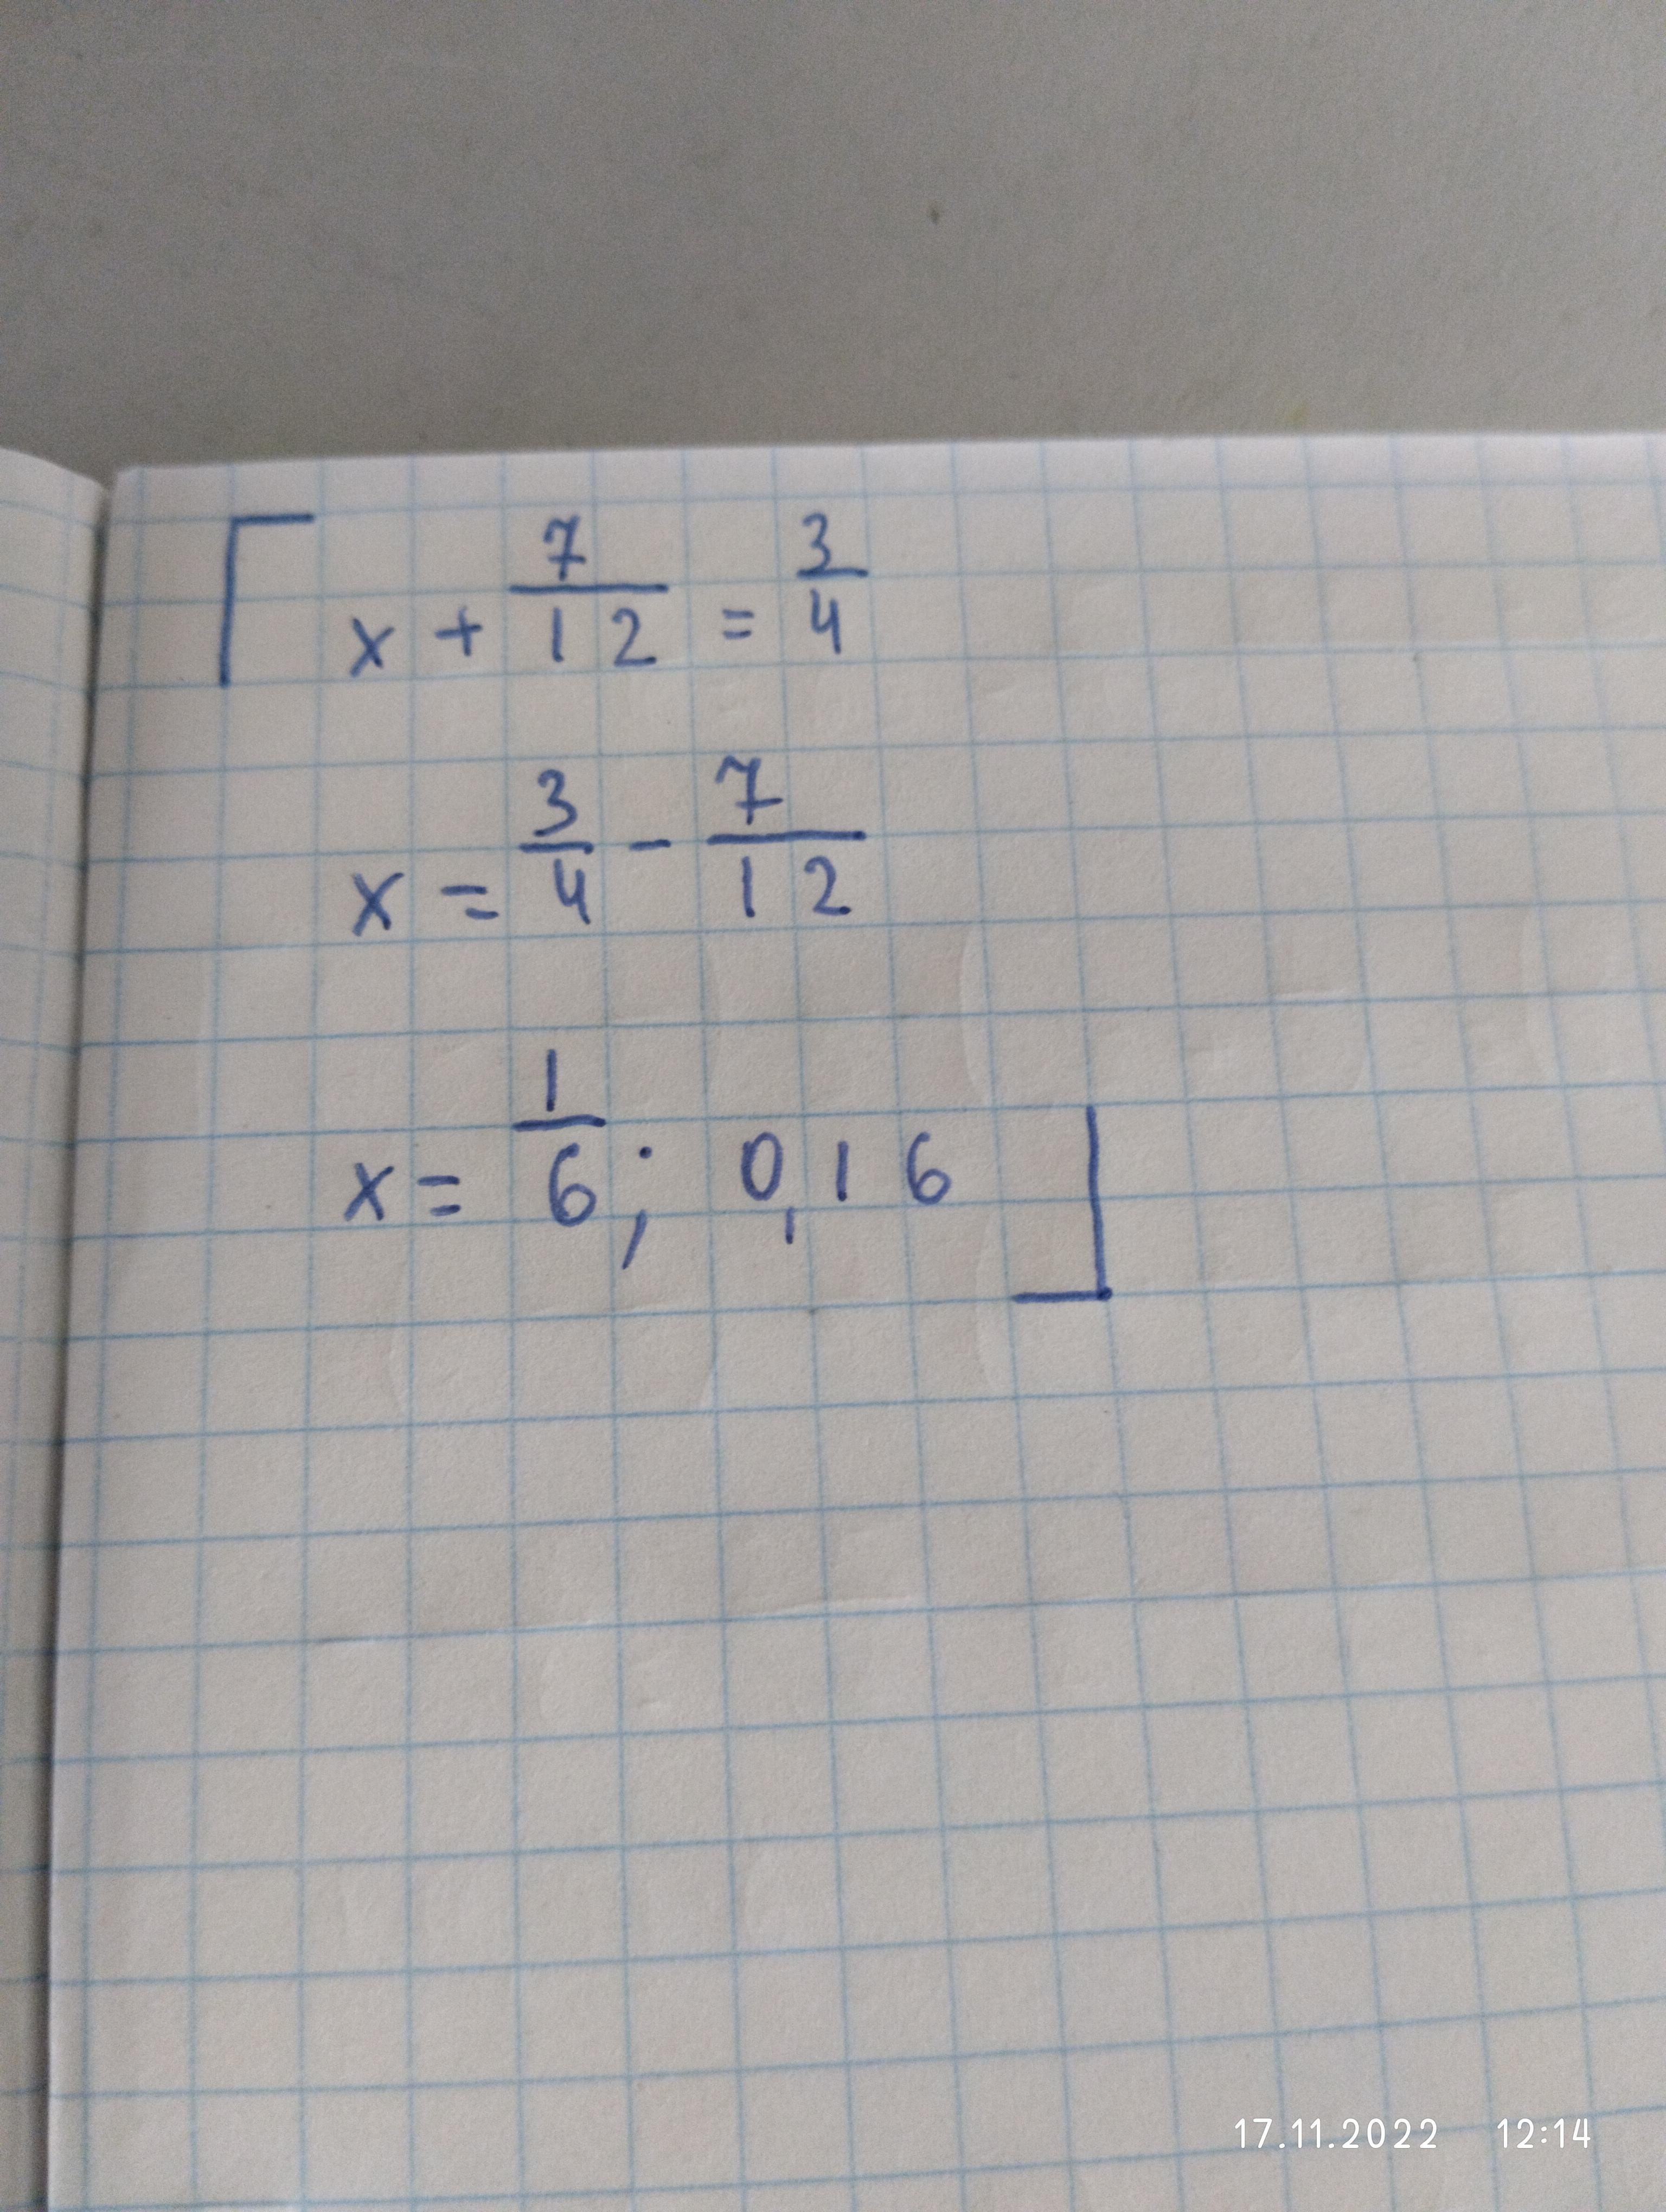 x + 7/12 = 3/4
x = 3/4 - 7/12
x = 1/6; 0,16
17.11.2022 12:14